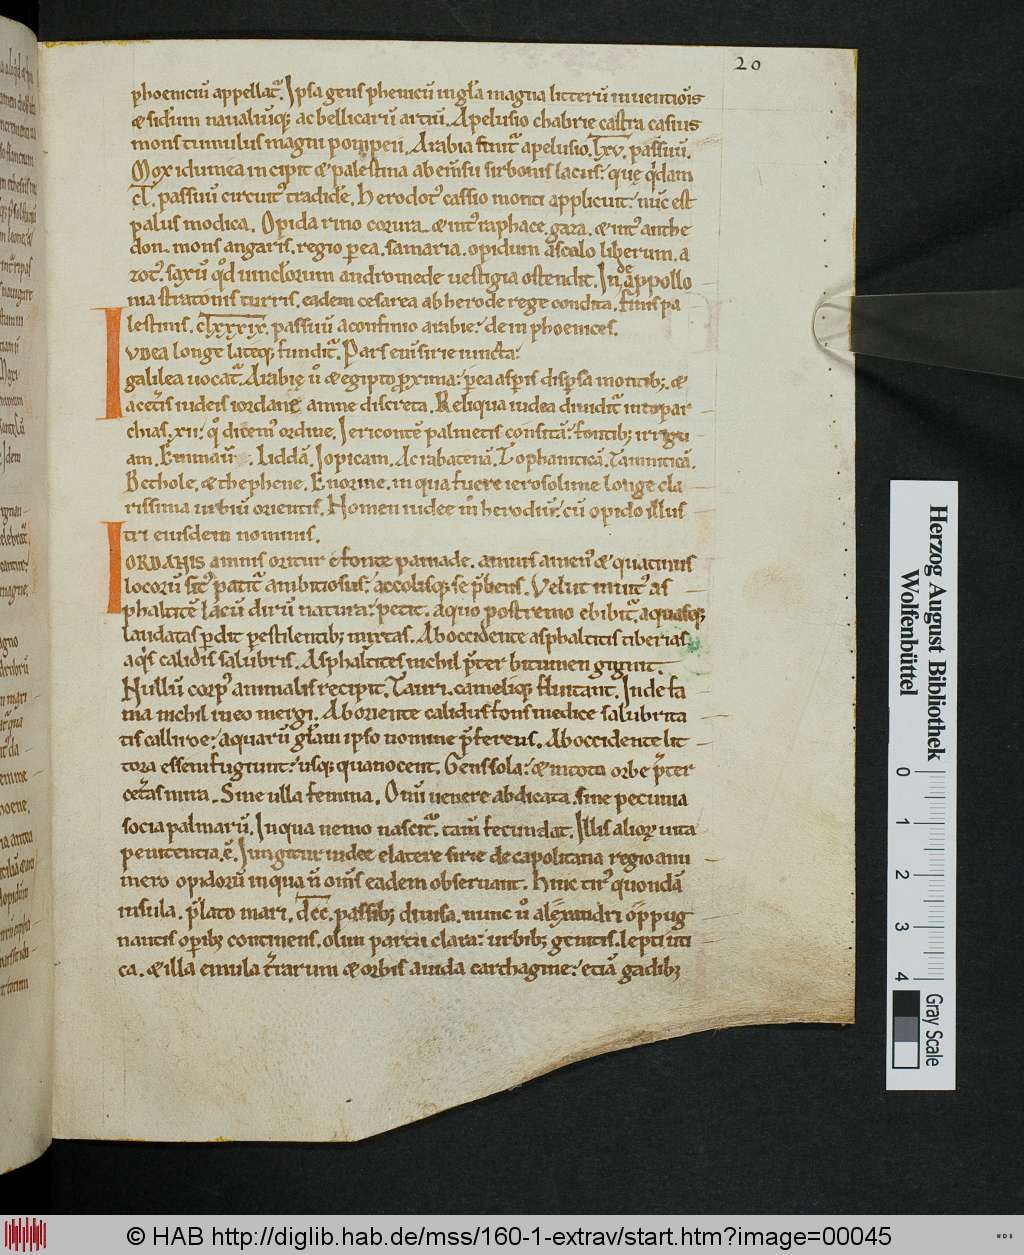 20
phoeniciū appellat̃. Ipsa gens phenicū in gl̃a magna litterū inuentiõis
& sidũm naualiũq; ac bellicarũ artiũ. Apelusio chabrie castra casius
mons tumulus magni pompeii. Arabia finit̃ apelusio. lxv. passuũ.
Mox idumea incipit & palestina ab emisu sirbonis lacus: quę q̃dam
cl. passuũ circuitꝰ tradidẽ. herodotꝰ cassio monti applicuit: nũc est
palus modica. Opida rino corura. & intꝰ raphace. gaza. & intꝰ anthe
don. mons angaris. regio ꝑea. samaria. opidum ascalo liberum. a
zotꝰ. saxũ q̃d iunctorum andromede uestigia ostendit. In de appollo
ma stratonis turris. eadem cesarea ab herode rege condita. finis pa
lestinis. clxxxix. passuũ aconfinio arabie: dein phoenices.
IUDEA longe lateq; fundit̃. Pars eiuˀ sirie iuncta:
galilea uocat̃. Arabię ũo & egipto ꝓxima: ꝑea asꝑis disꝑsa montib;. &
acet̃is iudeis iordane amne discreta. Reliqua iudea diuidit̃ in topar
chias. xii: q̃ dicemꝰ ordine. Iericontẽ palmetis consitã: fontib; irrigu
am. Emmaũ. Liddã. Iopicam. Acrabatenã. Tophaniticã. Tamniticã.
Bethole. & thephene. Enorine. in qua fuere ierosolime longe cla
rissima urbiũ orientis. Nomen iudee in herodiũ: cũ opido illus
tri eiusdem nominis.
IORDANIS amnis oritur e fonte pamade. amnis amenꝰ & quatinus
locorũ sitꝰ patit̃ ambitiosus: accolisq; se p̃bens. Velut inuitꝰ as
phaltitẽ lacũ dirũ natura: petit. aquo postremo ebibit̃. aquasq;
laudatas ꝑdit pestilentib; mixtas. Aboccidente asphaltitis tiberias.
aq̃s calidis salubris. Asphaltites nichil p̃ter bitumen gignit.
Nullũ corpꝰ animalis recipit. Tauri. cameliq; fluitant. Inde fa
ma nichil in eo mergi. Aboriente calidus fons medice salubrita
tis calliroe: aquarũ gl̃am ipso nomine p̃ferens. Aboccidente lit
tora esseni fugiunt: usq; qua nocent. Gens sola: & in toto orbe p̃ter
cet̃as mira. Sine ulla femina. Omĩ uenere abdicata. sine pecunia
socia palmarũ. In qua nemo nascit̃. tam̃ fecundat. Illis alioꝝ uita
penitentia. ẽ. Iungitur iudee elatere sirie decapolitana regio anu
mero opidorũ in qua ñ om̃s eadem obseruant. Hinc tirꝰ quondã
insula. p̃lato mari. dcc. passib; diuisa. nunc ũo alexandri oppug
nantis oꝑib; continens. olim partu clara: urbib; genitis. lepti uti
ca. & illa emula t̃rarum & orbis auida carthagine: etiã gadib;
Herzog August Bibliothek
Wolfenbüttel
0
1
2
3
4
Gray Scale
© HAB http://diglib.hab.de/mss/160-1-extrav/start.htm?image=00045